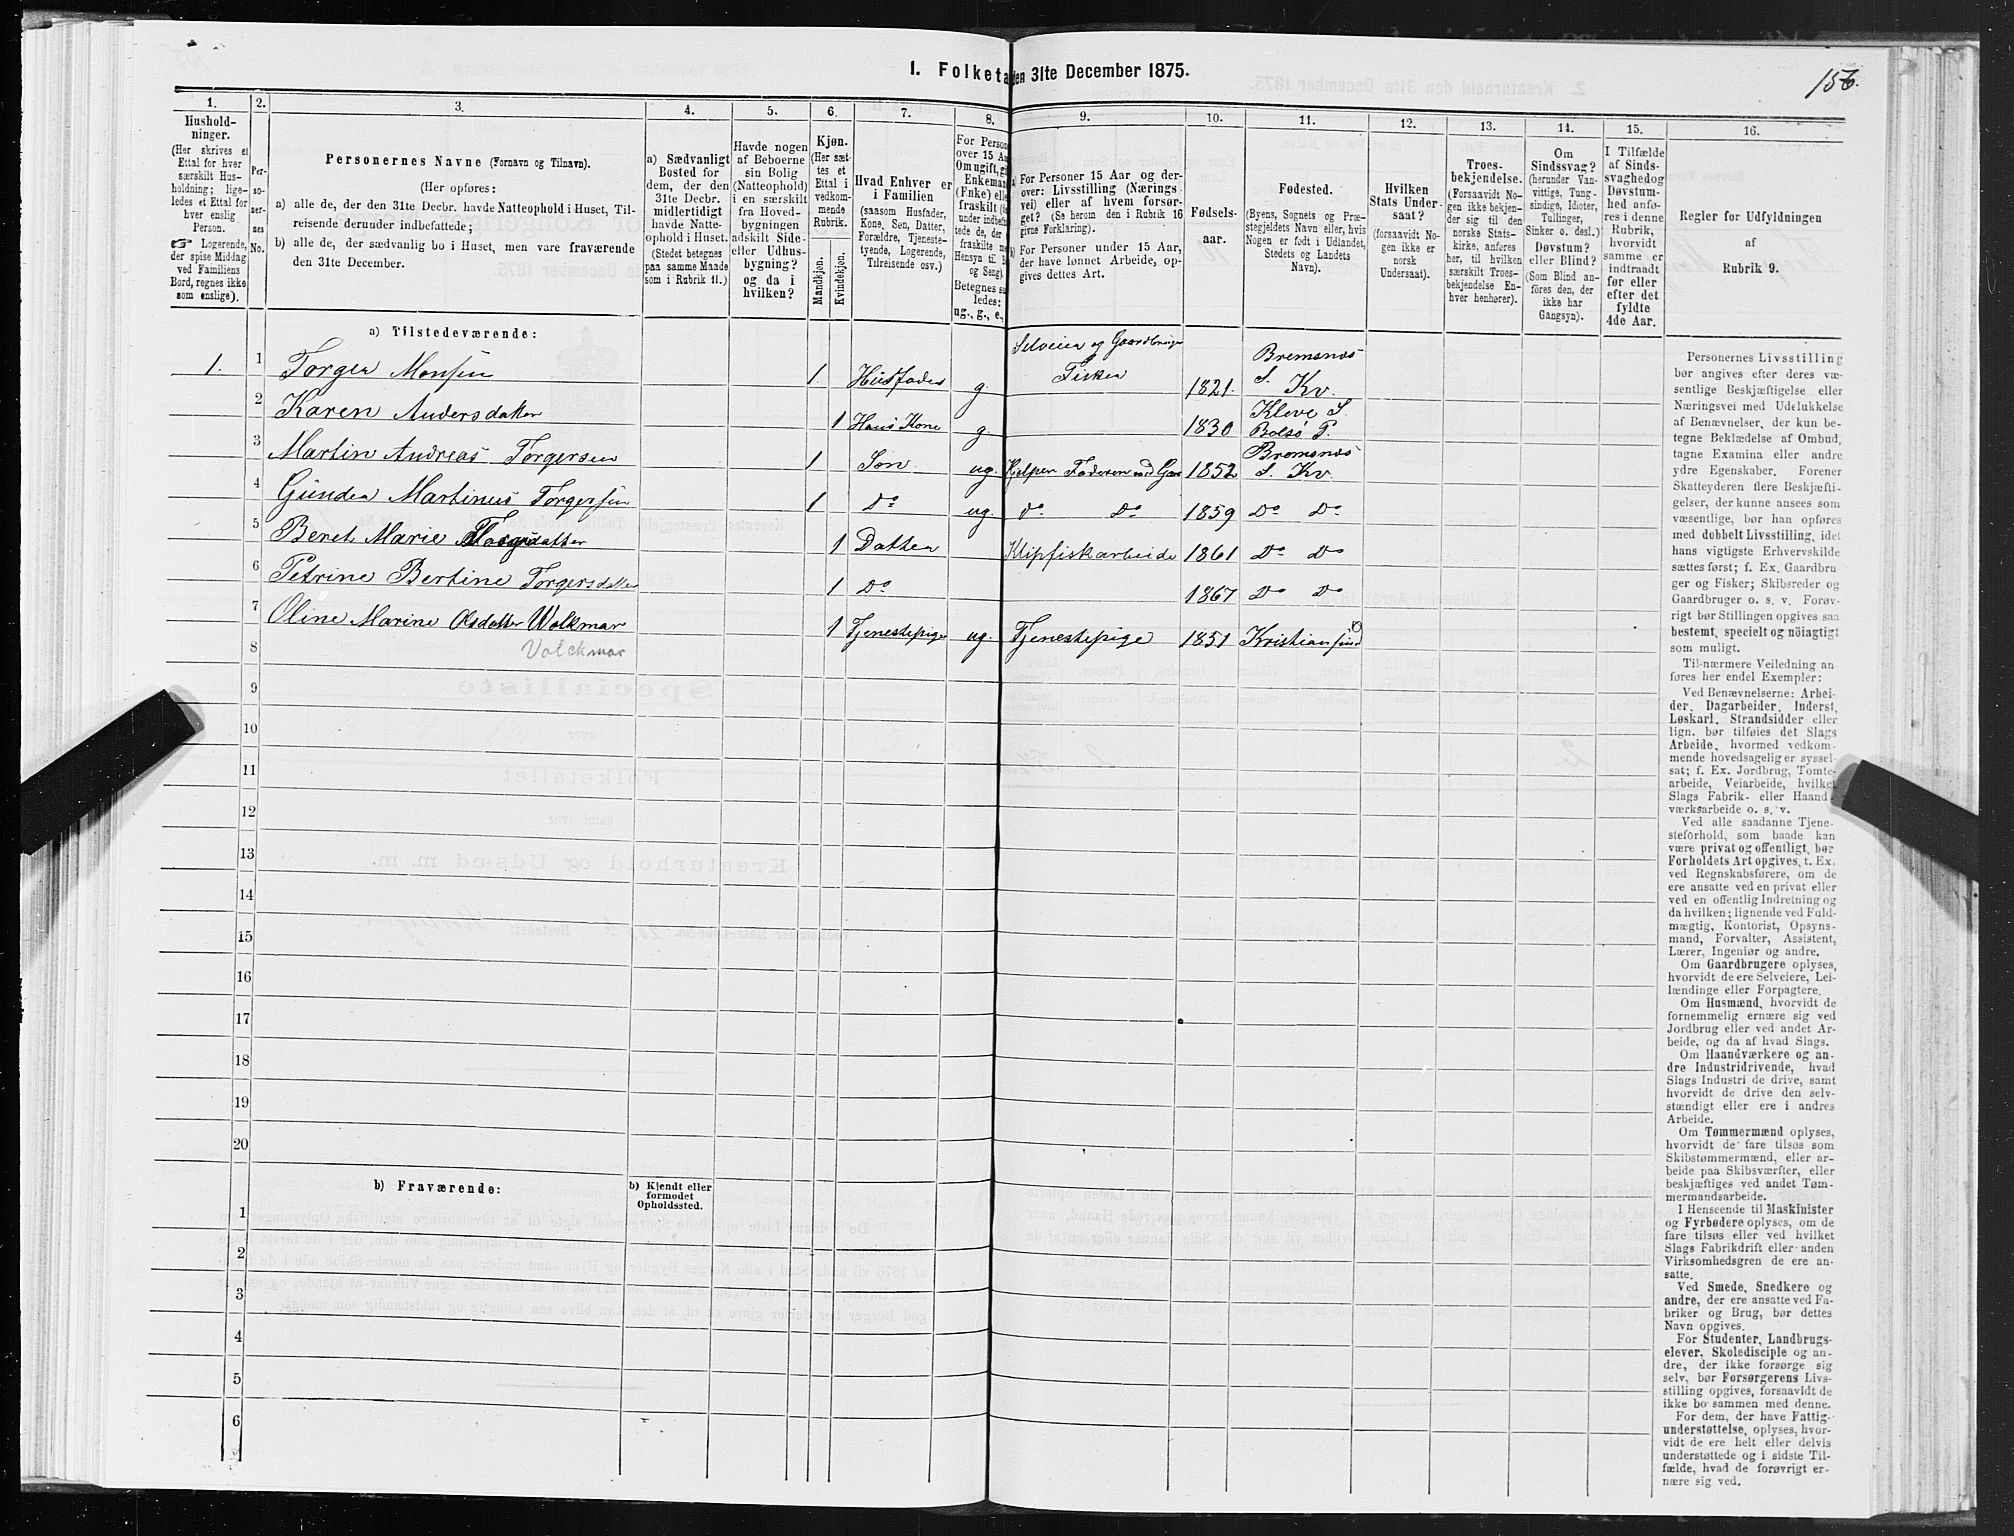 156.
I. Folketa
den 31te December 1875.
1.
2.
3.
4.
5.
6.
7.
8.
9.
10.
11.
12.
13.
14.
15.
16.
Hushold-
ninger.
(Her skrives et
Ettal for hver
særskilt Hus-
holdning; lige-
ledes et Ettal for
hver enslig
Person.
☞ Logerende,
der spise Middag
ved Familiens
Bord, regnes ikke
som enslige).
Per-
so-
ner-
nes
No.
Personernes Navne (Fornavn og Tilnavn).
(Her opføres:
a) alle de, der den 31te Decbr. havde Natteophold i Huset, Til-
reisende derunder indbefattede;
b) alle de, der sædvanlig bo i Huset, men vare fraværende
den 31te December.
a) Sædvanligt
Bosted for
dem, der den
31te Decbr.
midlertidigt
havde Natte-
ophold i Huset.
(Stedet betegnes
paa samme Maade
som i Rubrik 11.)
Havde nogen
af Beboerne
sin Bolig
(Natteophold)
i en særskilt
fra Hoved-
bygningen
adskilt Side-
eller Udhus-
bygning?
og da i
hvilken?
Kjøn.
(Her sæt-
tes et
Ettal i
vedkom-
mende
Rubrik.
Mandkjøn.
Kvindekjøn.
Hvad Enhver er
i Familien
(saasom Husfader,
Kone, Søn, Datter,
Forældre, Tjeneste-
tyende, Logerende,
Tilreisende osv.)
For Person
over 15 Aa
Om ugift, gi
Enkeman
(Fnke) elle
fraskilt (
under indbef
tede de, der
fraskilte m
Hensyn til B
og Seng).
Betegnes sa
ledes:
ug., g., e.,
a) For Personer 15 Aar og der-
over: Livsstilling (Nærings
vei) eller af hvem forsør-
get? (Se herom den i Rubrik 16
givne Forklaring).
b) For Personer under 15 Aar,
der have lønnet Arbeide, op-
gives dettes Art.
Fødsels-
aar.
Fødested.
(Byens, Sognets og Præ-
stegjeldets Navn eller, hvis
Nogen er født i Udlandet,
Stedets og Landets
Navn).
Hvilken
Stats Under-
saat?
(forsaavidt No-
gen ikke er
norsk
Undersaat).
Troes-
bekjendelse.
(Forsaavidt No-
gen ikke bekjen-
der sig til den
norske Stats-
kirke, anføres
her, til hvilken
særskilt Troes-
bekjendelse En-
hver henhører).
Om
Sindssvag?
(herunder Van-
vittige, Tung-
sindige, Idioter,
Tullinger,
Sinker o. desl.)
Døvstum?
eller Blind?
(Som Blind an-
föres den, der
ikke har
Gangsyn).
I Tilfælde
af Sinds-
svaghed og
Døvstum-
hed anfø-
res i denne
Rubrik,
hvorvidt
samme er
indtraadt
før eller
efter det
fyldte
4de Aar.
Regler for Udfyldningen
af
Rubrik 9.
a) Tilstedeværende:
1. 1 Torger Monsen 1. Husfader g. Selveier og Gaardbruger Fisker 1821. Bremsnes S. Kv.
2 Karen Andersdatter 1 Hans Kone g. 1830 Kleve S. Bolsø P.
3 Martin Andreas Torgersen 1 Søn ug. Hjelper Faderen med Gaar 1852 Bremsnes S. Kv.
4 Gunder Martinus Torgersen 1 Do ug. do Do 1859 Do Do
5 Beret Marie Torgerdatter 1 Datter Klipfiskarbeide 1861 Do Do
6 Petrine Bertine Torgersdatter 1 Do 1867 Do Do
7 Oline Marine Olsdatter Wolkmar 1 Tjenestepige ug. Tjenestepige 1851 Kristiansund
8 Volckmar
9
10
11
12
13
14
15
16
17
18
19
20
b) Fraværende:
b) Kjendt eller
formodet
Opholdssted.
1
2
3
4
5
6
Personernes Livsstilling
bør angives efter deres væ-
sentlige Beskjæftigelse eller
Næringsvei med Udelukkelse
af Benævnelser, der kun be-
tegne Beklædelse af Ombud,
tagne Examina eller andre
ydre Egenskaber. Forener
Skatteyderen flere Beskjæfti-
gelser, der kunne ansees som
væsentlige, bør han opføres
med dobbelt Livsstilling, idet
hans vigtigste Erhvervskilde
sættes først; f. Ex. Gaardbru-
ger og Fisker; Skibsreder og
Gaardbruger o. s. v. Forøv-
rigt bør Stillingen opgives saa
bestemt, specielt og nöiagtigt
som muligt.
Til nærmere Veiledning an
føres her endel Exempler:
Ved Benævnelserne: Arbei-
der, Dagarbeider, Inderst,
Løskarl, Strandsidder eller
lign. bør tilføies det Slags
Arbeide, hvormed vedkom-
mende hovedsagelig er syssel-
sat; f. Ex. Jordbrug, Tomte-
arbeide, Veiarbeide, hvilket
Slags Fabrik- eller Haand-
værksarbeide o. s. v.
Ved alle saadanne Tjene-
steforhold, som baade kan
være privat og offentligt, bør
Forholdets Art opgives, t. Ex.
ved Regnskabsførere, om de
ere ansatte ved en privat eller
ved en offentlig Indretning og
da hvilken; lignende ved Fuld-
mægtig, Kontorist, Opsyns-
mand, Forvalter, Assistent,
Lærer, Ingeniør og andre.
Om Gaardbrugere oplyses,
hvorvidt de ere Selveiere, Lei-
lændinge eller Forpagtere.
Om Husmænd, hvorvidt de
fornemmelig ernære sig ved
Jordbrug eller ved andet Ar-
beide, og da af hvad Slags.
Om Haandværkere og an-
dre Industridrivende, hvad
Slags Industri de drive, samt
hvorvidt de drive den selv-
stændigt eller ere i andres
Arbeide.
Om Tømmermænd oplyses,
hvorvidt de fare tilsøs som
Skibstømmermænd, eller ar-
beide paa Skibsværfter, eller
beskjæftiges ved andet Tøm-
mermandsarbeide.
I Henseende til Maskinister
og Fyrbødere oplyses, om de
fare tilsøs eller ved hvilket
Slags Fabrikdrift eller anden
Virksomhedsgren de ere an-
satte.
Ved Smede, Snedkere og
andre, der ere ansatte ved Fa-
briker og Brug, bør dettes
Navn opgives.
For Studenter, Landbrugs-
elever, Skoledisciple og an-
dre, der ikke forsørge sig
selv, bør Forsørgerens Livs-
stilling opgives, forsaavidt de
ikke bo sammen med denne.
For dem, der have Fattig-
understøttelse, oplyses, hvor-
vidt de ere helt eller delvis
understøttede og i sidste Til-
fælde, hvad de forøvrigt er-
nære sig ved.